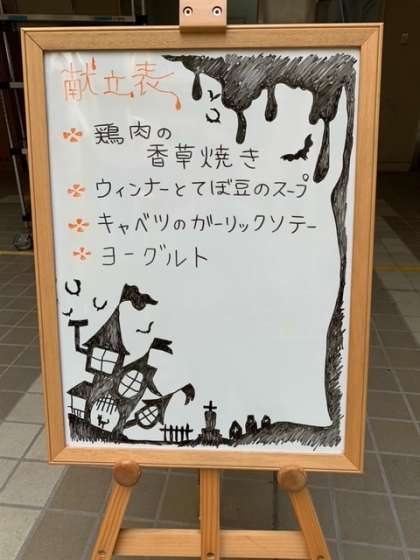 献立表
鶏肉の
香草焼き
ウィンナーとてぼ豆のスープ
キャベツのガーリックソテー
ヨーグルト